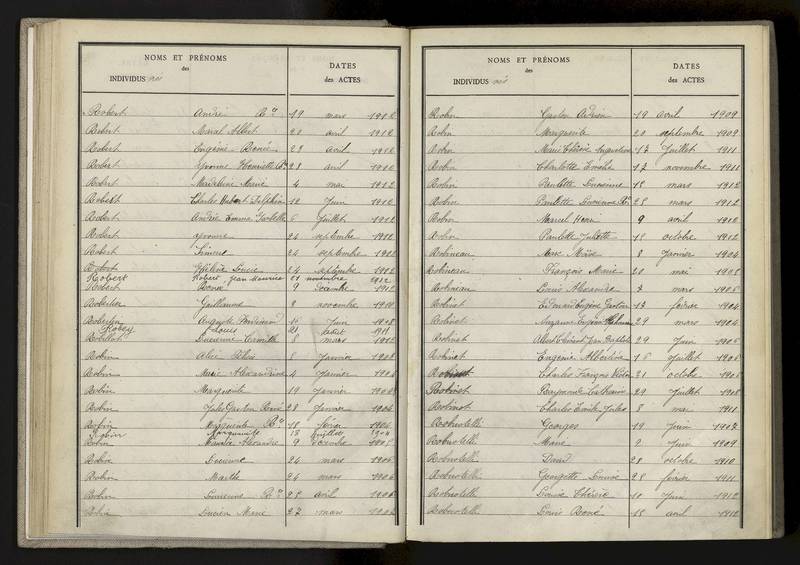 NOMS ET PRÉNOMS
des
INDIVIDUS nés
DATES
des ACTES
Robert André Bte 19 mars 1912
Robert Marcel Albert 20 avril 1912
Robert Eugénie Renée 23 avril 1912
Robert Yvonne Henriette 28 avril 1912
Robert Madeleine Marie 4 mai 1912
Robert Charles Hubert Delphin 12 Juin 1912
Robert Andrée Emma 6 Juillet 1912
Robert Yvonne 24 septembre 1912
Robert Simone 24 septembre 1912
Robert Hélène Louise 24 septembre 1912
Robert Robert Jean Maurice novembre 1912
Robert René 9 Décembre 1912
Robertin Guillaume 8 novembre 1910
Robertin Auguste Ferdinand Juin 1908
Robey Louis 21 1911
Robillot Lucienne Camille 8 mars 1912
Robin Alice 5 Janvier 1903
Robin Marie Alexandrine 4 Janvier 1904
Robin Marguerite 19 Janvier 1904
Robin Jules Gaston René 28 Janvier 1904
Robin Marguerite Bte 18 février 1904
Robin Marguerite 13 Juillet 1904
Robin Maurice Alexandre 9 Décembre 1905
Robin Lucienne 24 mars 1906
Robin Marthe 24 mars 1906
Robin Lucienne Bte 25 avril 1906
Robin Lucien Marie 27 mars 1907
NOMS ET PRÉNOMS
des
INDIVIDUS nés
DATES
des ACTES
Robin Gaston Adrien 19 avril 1909
Robin Marguerite 20 septembre 1909
Robin Marie Thérèse Augustine 13 Juillet 1911
Robin Charlotte Emélie 17 novembre 1911
Robin Paulette Lucienne 15 mars 1912
Robin Paulette Lucienne Bte 25 mars 1912
Robin Marcel Henri 9 avril 1912
Robin Paulette Juliette 15 octobre 1912
Robineau Marie 8 Janvier 1904
Robineau François Marie 20 mai 1905
Robineau Louis Alexandre 3 mars 1906
Robinet Edmond Eugène Gaston 13 février 1904
Robinet Suzanne Eugénie 29 mars 1904
Robinet Albert Clément Jean Baptiste 29 Juin 1905
Robinet Eugénie Albertine 16 Juillet 1906
Robinet Charles François 21 octobre 1906
Robinet Raymonde 29 Juillet 1908
Robinot Charles Emile Jules 8 mai 1911
Robinotelli Georges 19 Juin 1907
Robinotelli Marie 2 Juin 1909
Robinotelli David 28 octobre 1910
Robinotelli Georgette Louise 28 février 1911
Robinotelli Louise Thérèse 10 Juin 1912
Robinotelli Louis René 15 avril 1912